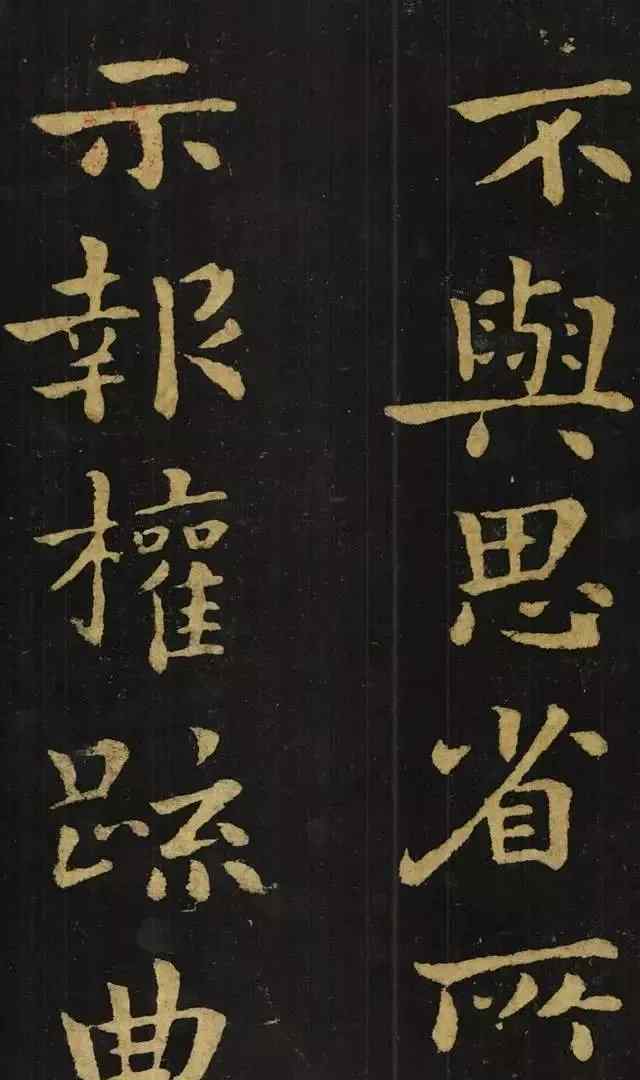 不與思省所
示報權疏曲